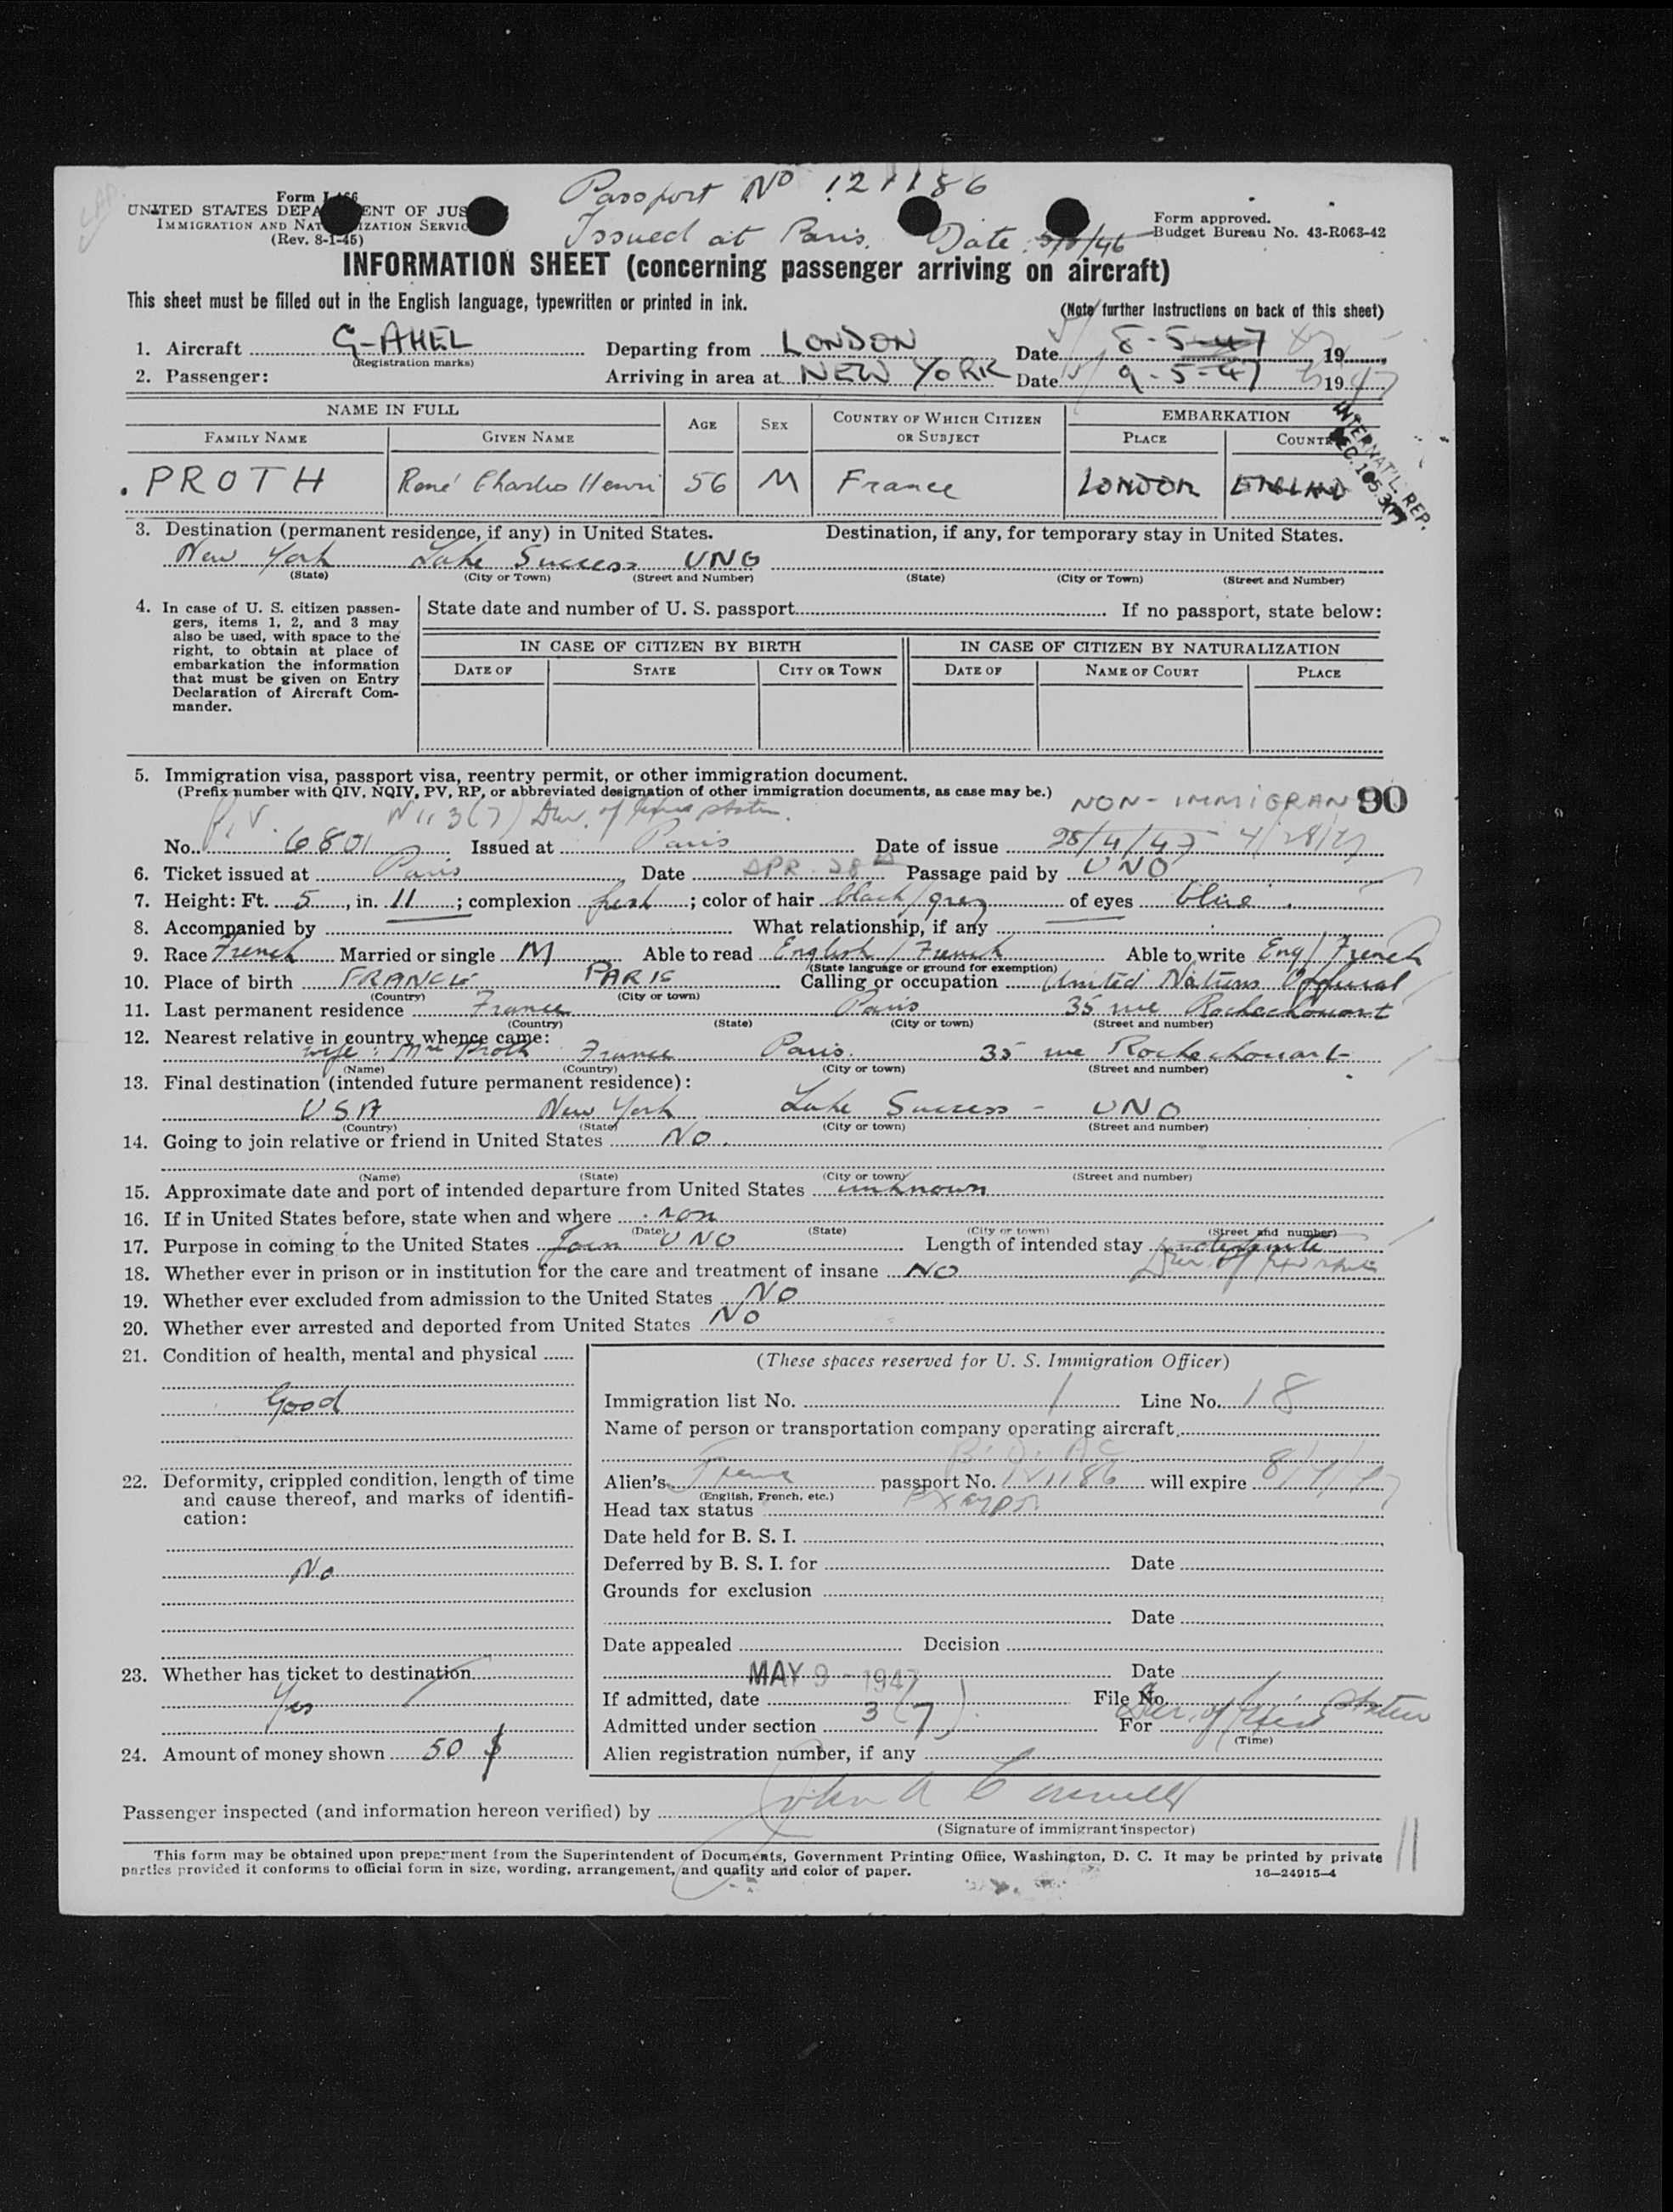 Passport No 121186
Form I-466
UNITED STATES DEPARTMENT OF JUSTICE
IMMIGRATION AND NATURALIZATION SERVICE
(Rev. 8-1-45)
Issued at Paris. Date
Form approved.
Budget Bureau No. 43-R063-42
INFORMATION SHEET (concerning passenger arriving on aircraft)
This sheet must be filled out in the English language, typewritten or printed in ink.
(Note further instructions on back of this sheet)
1. Aircraft G-AHEL Departing from LONDON Date 8-5-47 19
(Registration marks)
2. Passenger: Arriving in area at NEW YORK Date 9-5-47 1947
NAME IN FULL AGE SEX COUNTRY OF WHICH CITIZEN OR SUBJECT EMBARKATION
FAMILY NAME GIVEN NAME PLACE COUNTRY
INTERNAT'L REP.
PROTH René Charles Henri 56 M France LONDON ENGLAND
3. Destination (permanent residence, if any) in United States. Destination, if any, for temporary stay in United States.
New York Lake Success UNO
(State) (City or Town) (Street and Number) (State) (City or Town) (Street and Number)
4. In case of U. S. citizen passengers, items 1, 2, and 3 may also be used, with space to the right, to obtain at place of embarkation the information that must be given on Entry Declaration of Aircraft Commander.
State date and number of U. S. passport If no passport, state below:
IN CASE OF CITIZEN BY BIRTH IN CASE OF CITIZEN BY NATURALIZATION
DATE OF STATE CITY OR TOWN DATE OF NAME OF COURT PLACE
5. Immigration visa, passport visa, reentry permit, or other immigration document.
(Prefix number with QIV, NQIV, PV, RP, or abbreviated designation of other immigration documents, as case may be.)
NON-IMMIGRAN 90
P.V. 3(7) Dur. of status
No. 6801 Issued at Paris Date of issue 28/4/47 4/28/47
6. Ticket issued at Paris Date APR. 28 Passage paid by UNO
7. Height: Ft. 5, in. 11; complexion fresh; color of hair black/grey of eyes blue
8. Accompanied by What relationship, if any
9. Race French Married or single M Able to read English/French Able to write Eng/French
(State language or ground for exemption)
10. Place of birth FRANCE PARIS Calling or occupation United Nations Official
(Country) (City or town)
11. Last permanent residence France Paris 35 rue Rochechouart
(Country) (State) (City or town) (Street and number)
12. Nearest relative in country whence came:
wife: Mme Proth France Paris. 35 rue Rochechouart
(Name) (Country) (City or town) (Street and number)
13. Final destination (intended future permanent residence):
USA New York Lake Success - UNO
(Country) (State) (City or town) (Street and number)
14. Going to join relative or friend in United States No.
(Name) (State) (City or town) (Street and number)
15. Approximate date and port of intended departure from United States unknown
16. If in United States before, state when and where non
(Date) (State) (City or town) (Street and number)
17. Purpose in coming to the United States Join UNO Length of intended stay indefinite
18. Whether ever in prison or in institution for the care and treatment of insane NO
19. Whether ever excluded from admission to the United States NO
20. Whether ever arrested and deported from United States NO
21. Condition of health, mental and physical
Good
22. Deformity, crippled condition, length of time and cause thereof, and marks of identification:
No
23. Whether has ticket to destination
Yes
24. Amount of money shown 50 $
(These spaces reserved for U. S. Immigration Officer)
Immigration list No. 1 Line No. 18
Name of person or transportation company operating aircraft
Alien's passport No. 121186 will expire
(English, French, etc.)
Head tax status Exempt
Date held for B. S. I.
Deferred by B. S. I. for Date
Grounds for exclusion
Date
Date appealed Decision
Date
MAY 9 - 1947
If admitted, date File No.
Admitted under section 3(7) For Dur. of status
(Time)
Alien registration number, if any
Passenger inspected (and information hereon verified) by John A
(Signature of immigrant inspector)
This form may be obtained upon prepayment from the Superintendent of Documents, Government Printing Office, Washington, D. C. It may be printed by private
parties provided it conforms to official form in size, wording, arrangement, and quality and color of paper. 16—24915-4